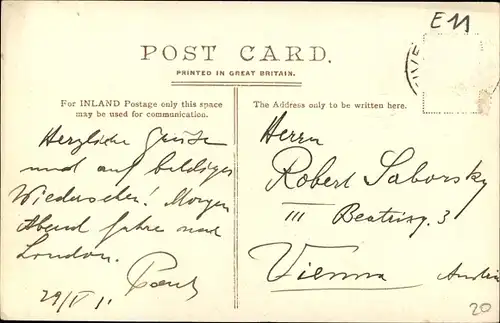 E11
POST CARD.
PRINTED IN GREAT BRITAIN.
For INLAND Postage only this space
may be used for communication.
The Address only to be written here.
Herzliche Grüße
und auf baldiges
Wiedersehen! Morgen
Abend fahre nach
London.
29/V 1.
Herrn
Robert Saborsky
III Beatrixg. 3
Vienna
Austria
20